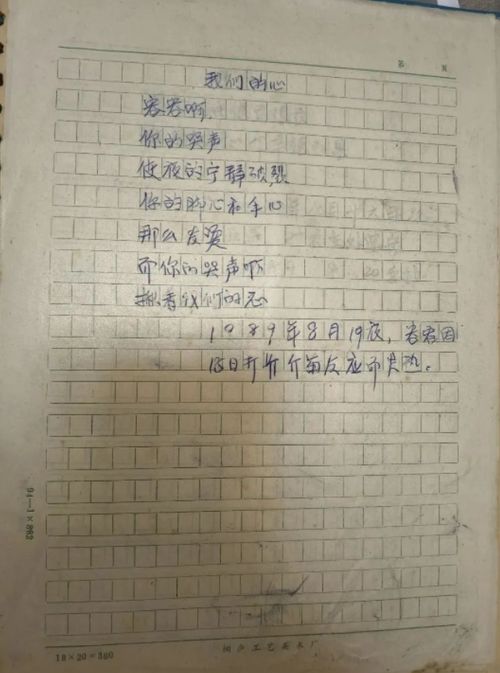 第 页
我们的心
容容啊
你的哭声
使夜的宁静破裂
你的脚心和手心
那么发烫
而你的哭声啊
揪着我们的心
1989年8月19夜，容容因
18日打 介苗反应而发热。
94—1×882
18×20=360
工艺美术厂